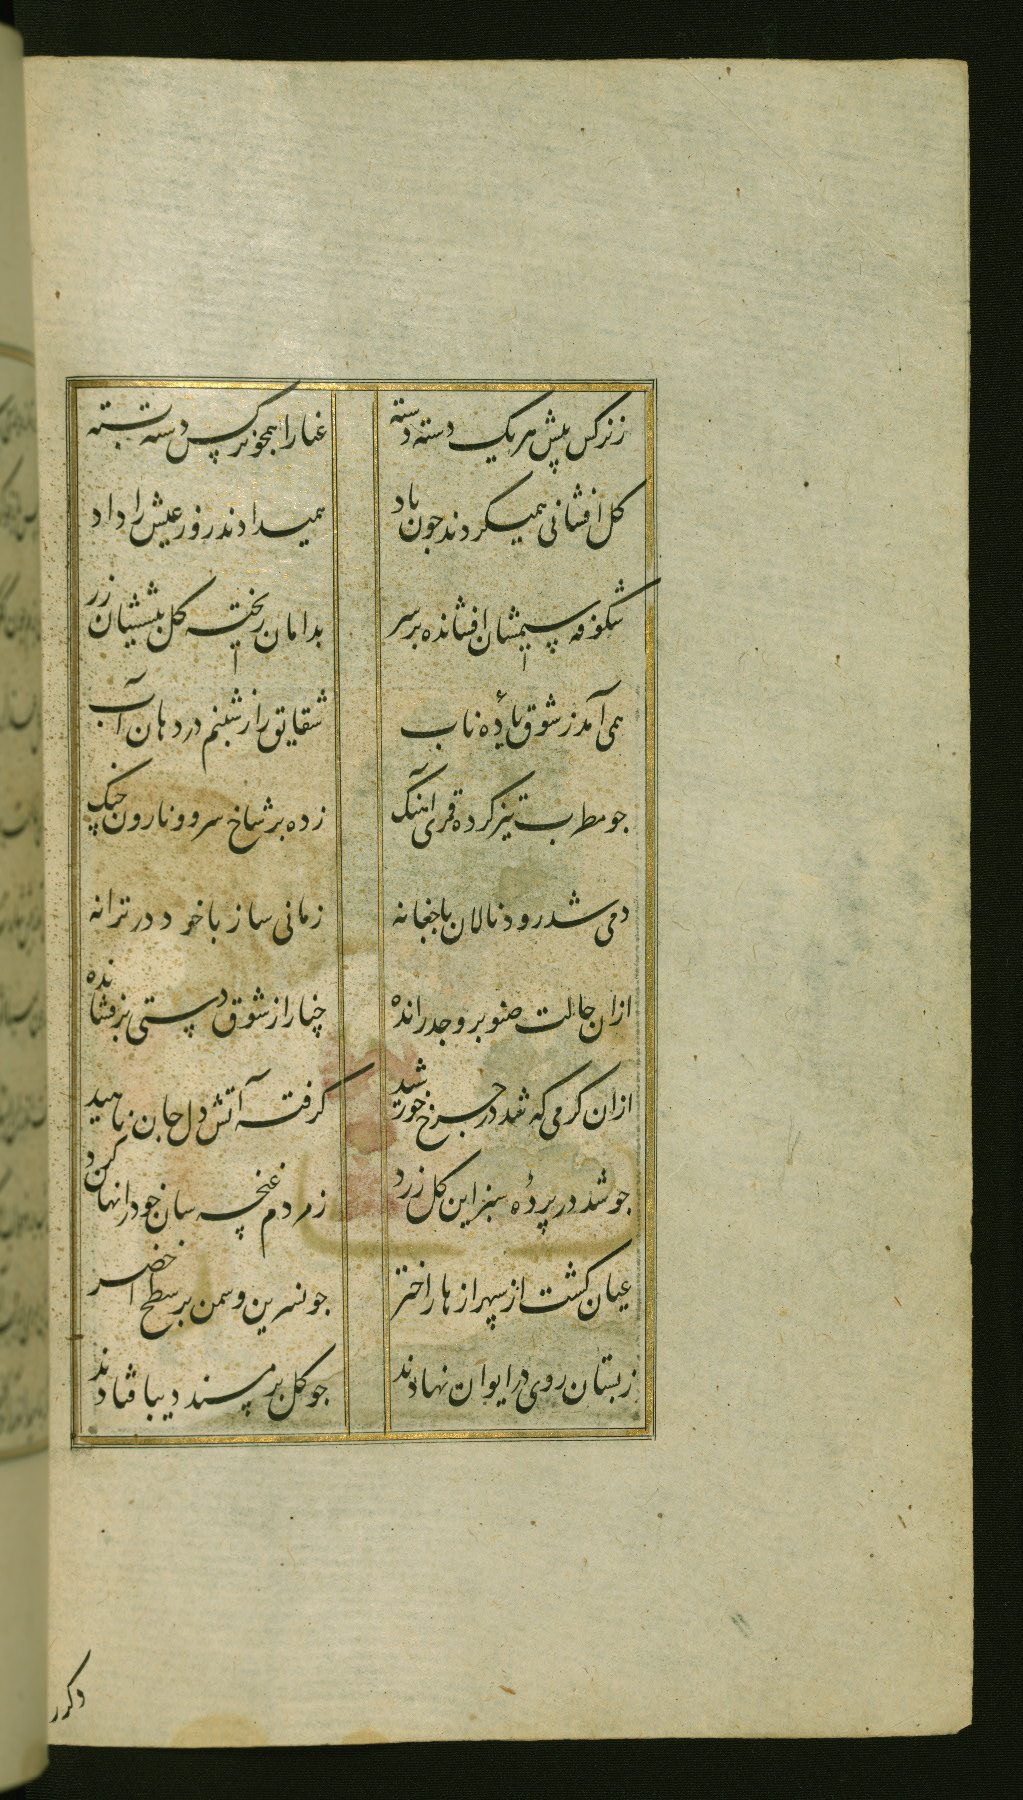 ز نرکس پیش هر یک دسته دسته غبار را همجو نرکس دسته بسته
کل افشانی همیکردند جون باد همیدادند روز عیش را داد
شکوفه سیمشان افشانده بر سر بدامان ریخته کل پیششان زر
همی آمد ز شوق بادهٔ ناب شقایق را ز شبنم در دهان آب
جو مطرب تیز کرده قمری آهنگ زده بر شاخ سرو و نارون چنک
دمی شد رود نالان با جغانه زمانی ساز با خود در ترانه
ازان حالت صنوبر وجد رانده چنار از شوق دستی برفشانده
ازان کرمی که شد در جرخ خورشید کرفت آتش دل و جان ناهید
جو شد در پردهٔ سبز این کل زرد ز مردم غنچه سان خود را نهان کرد
عیان کشت از سپهر ازهار اختر جو نسرین و سمن بر سطح اخضر
ز بستان روی در ایوان نهادند جو کل بر مسند دیبا فتادند
دکر